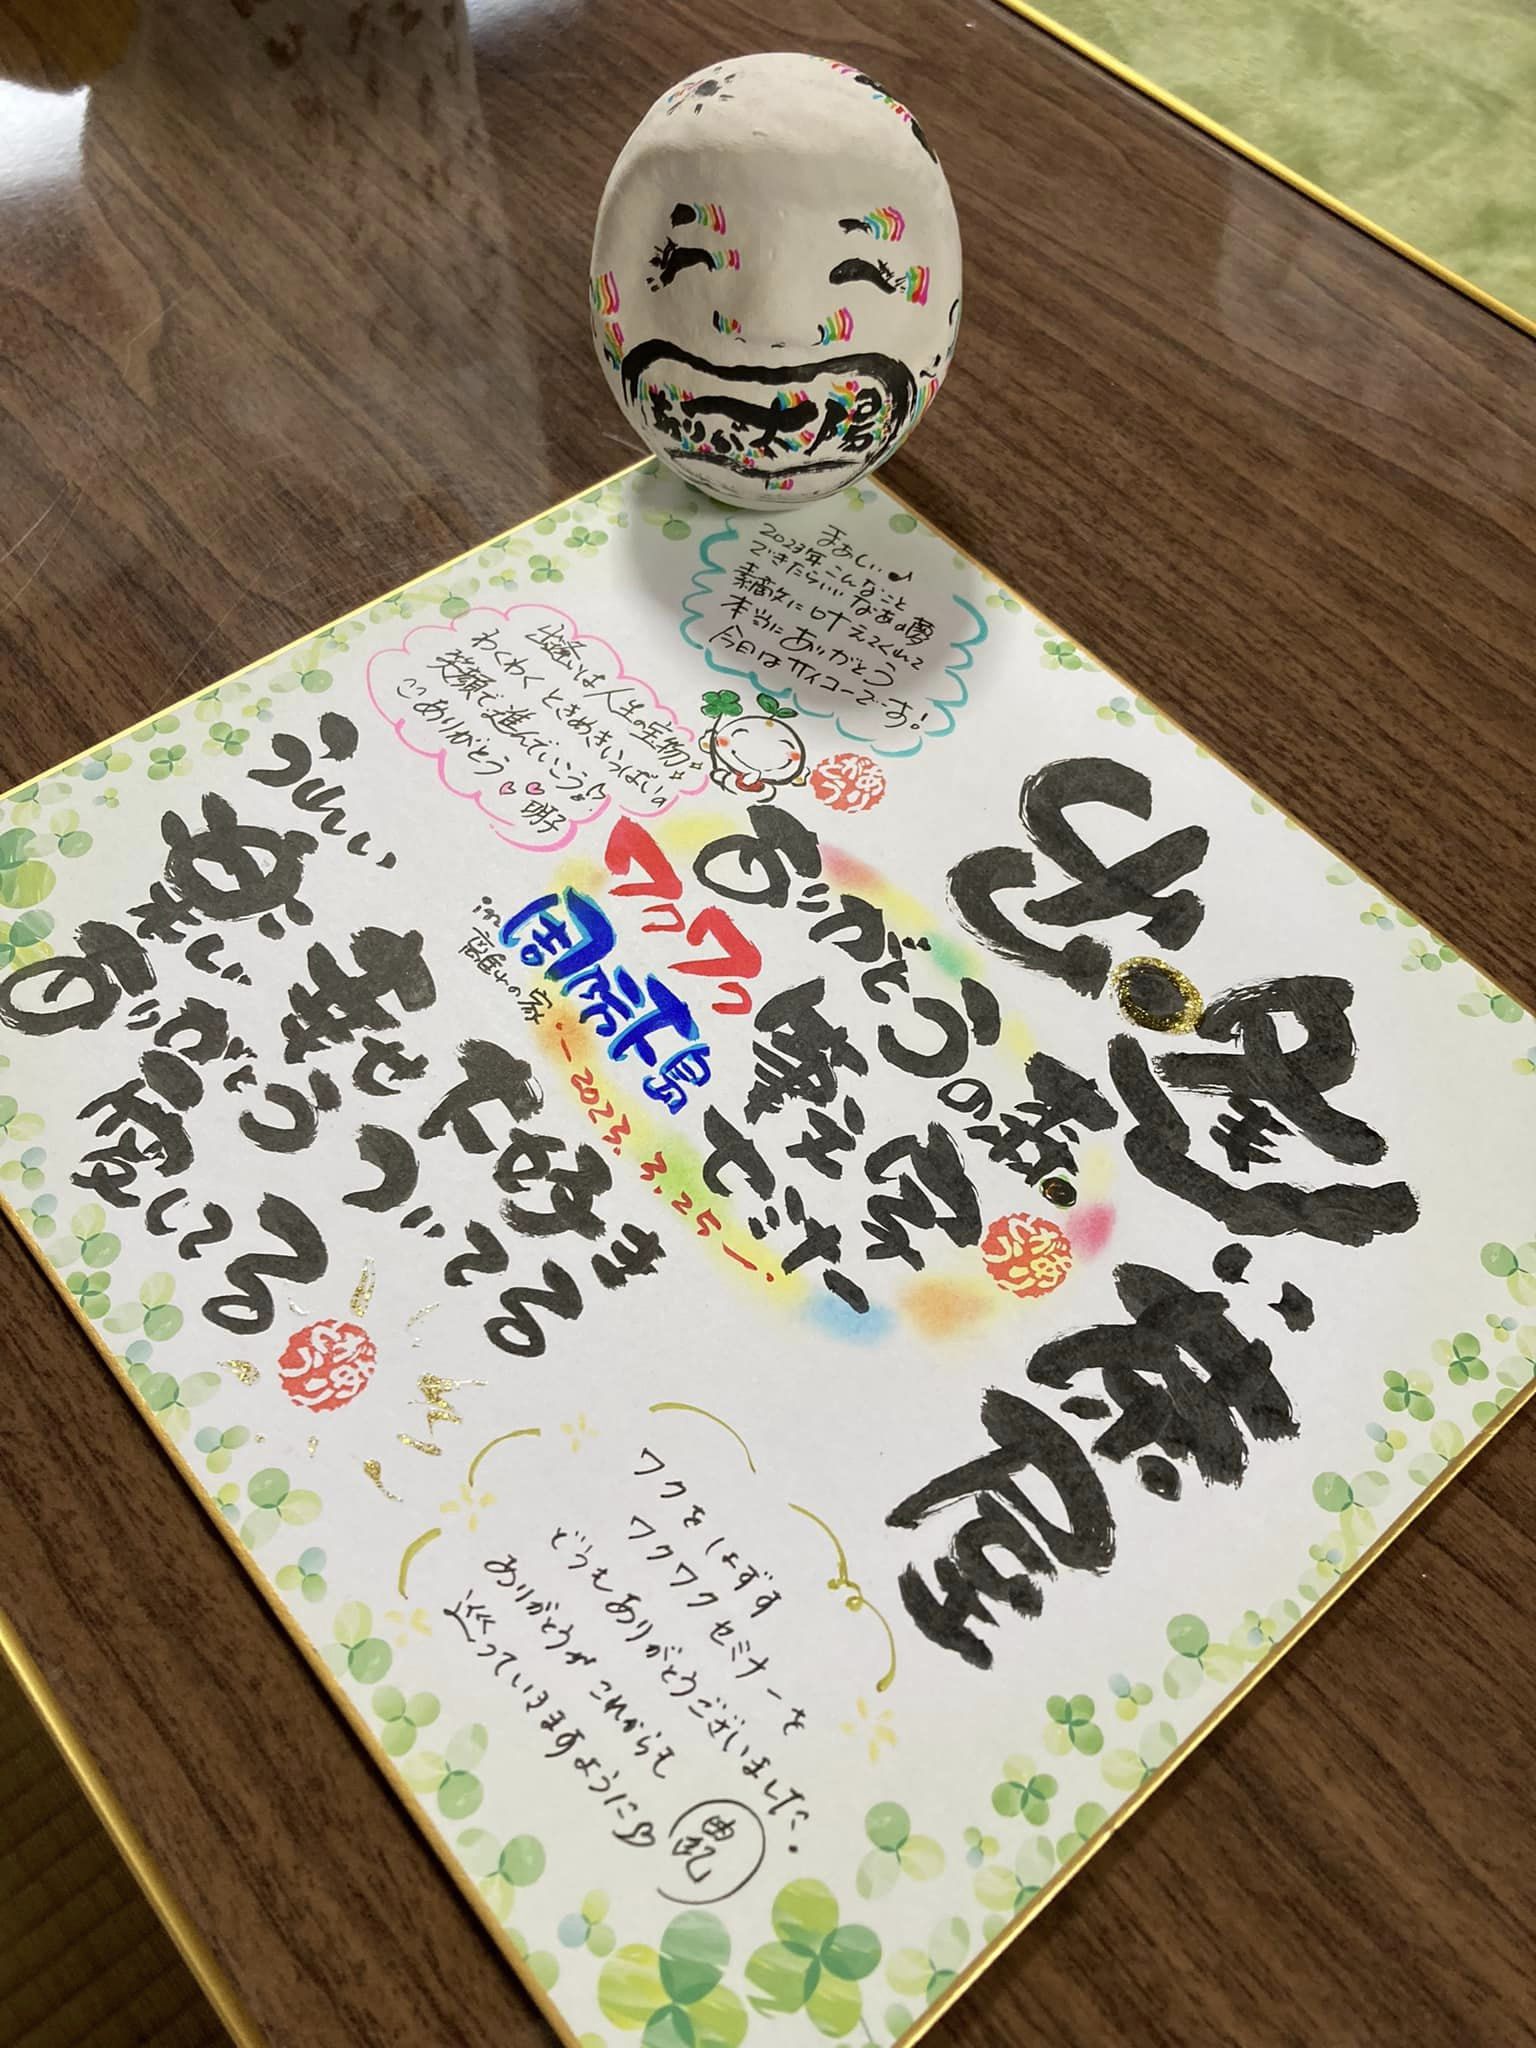 ありが太陽
まぁしぃ♪
2023年こんなこと
できたらいいなあの夢
素敵に叶えてくれて
本当にありがとう
今日はサイコーです!
出逢いは人生の宝物
わくわくときめきいっぱい
笑顔で進んでいこう
ありがとう♡♡
明子
ありがとう
ありがとうの種
セミナー
ありがとう
ワクワク
周防大島
in
離れの家
2023.3.25
うれしい
楽しい
幸せ
大好き
ありがとう
つづてる
愛してる
ありがとう
ワクをはずす
ワクワクセミナーを
どうもありがとうございました。
ありがとうがこれからも
巡っていきますように♡